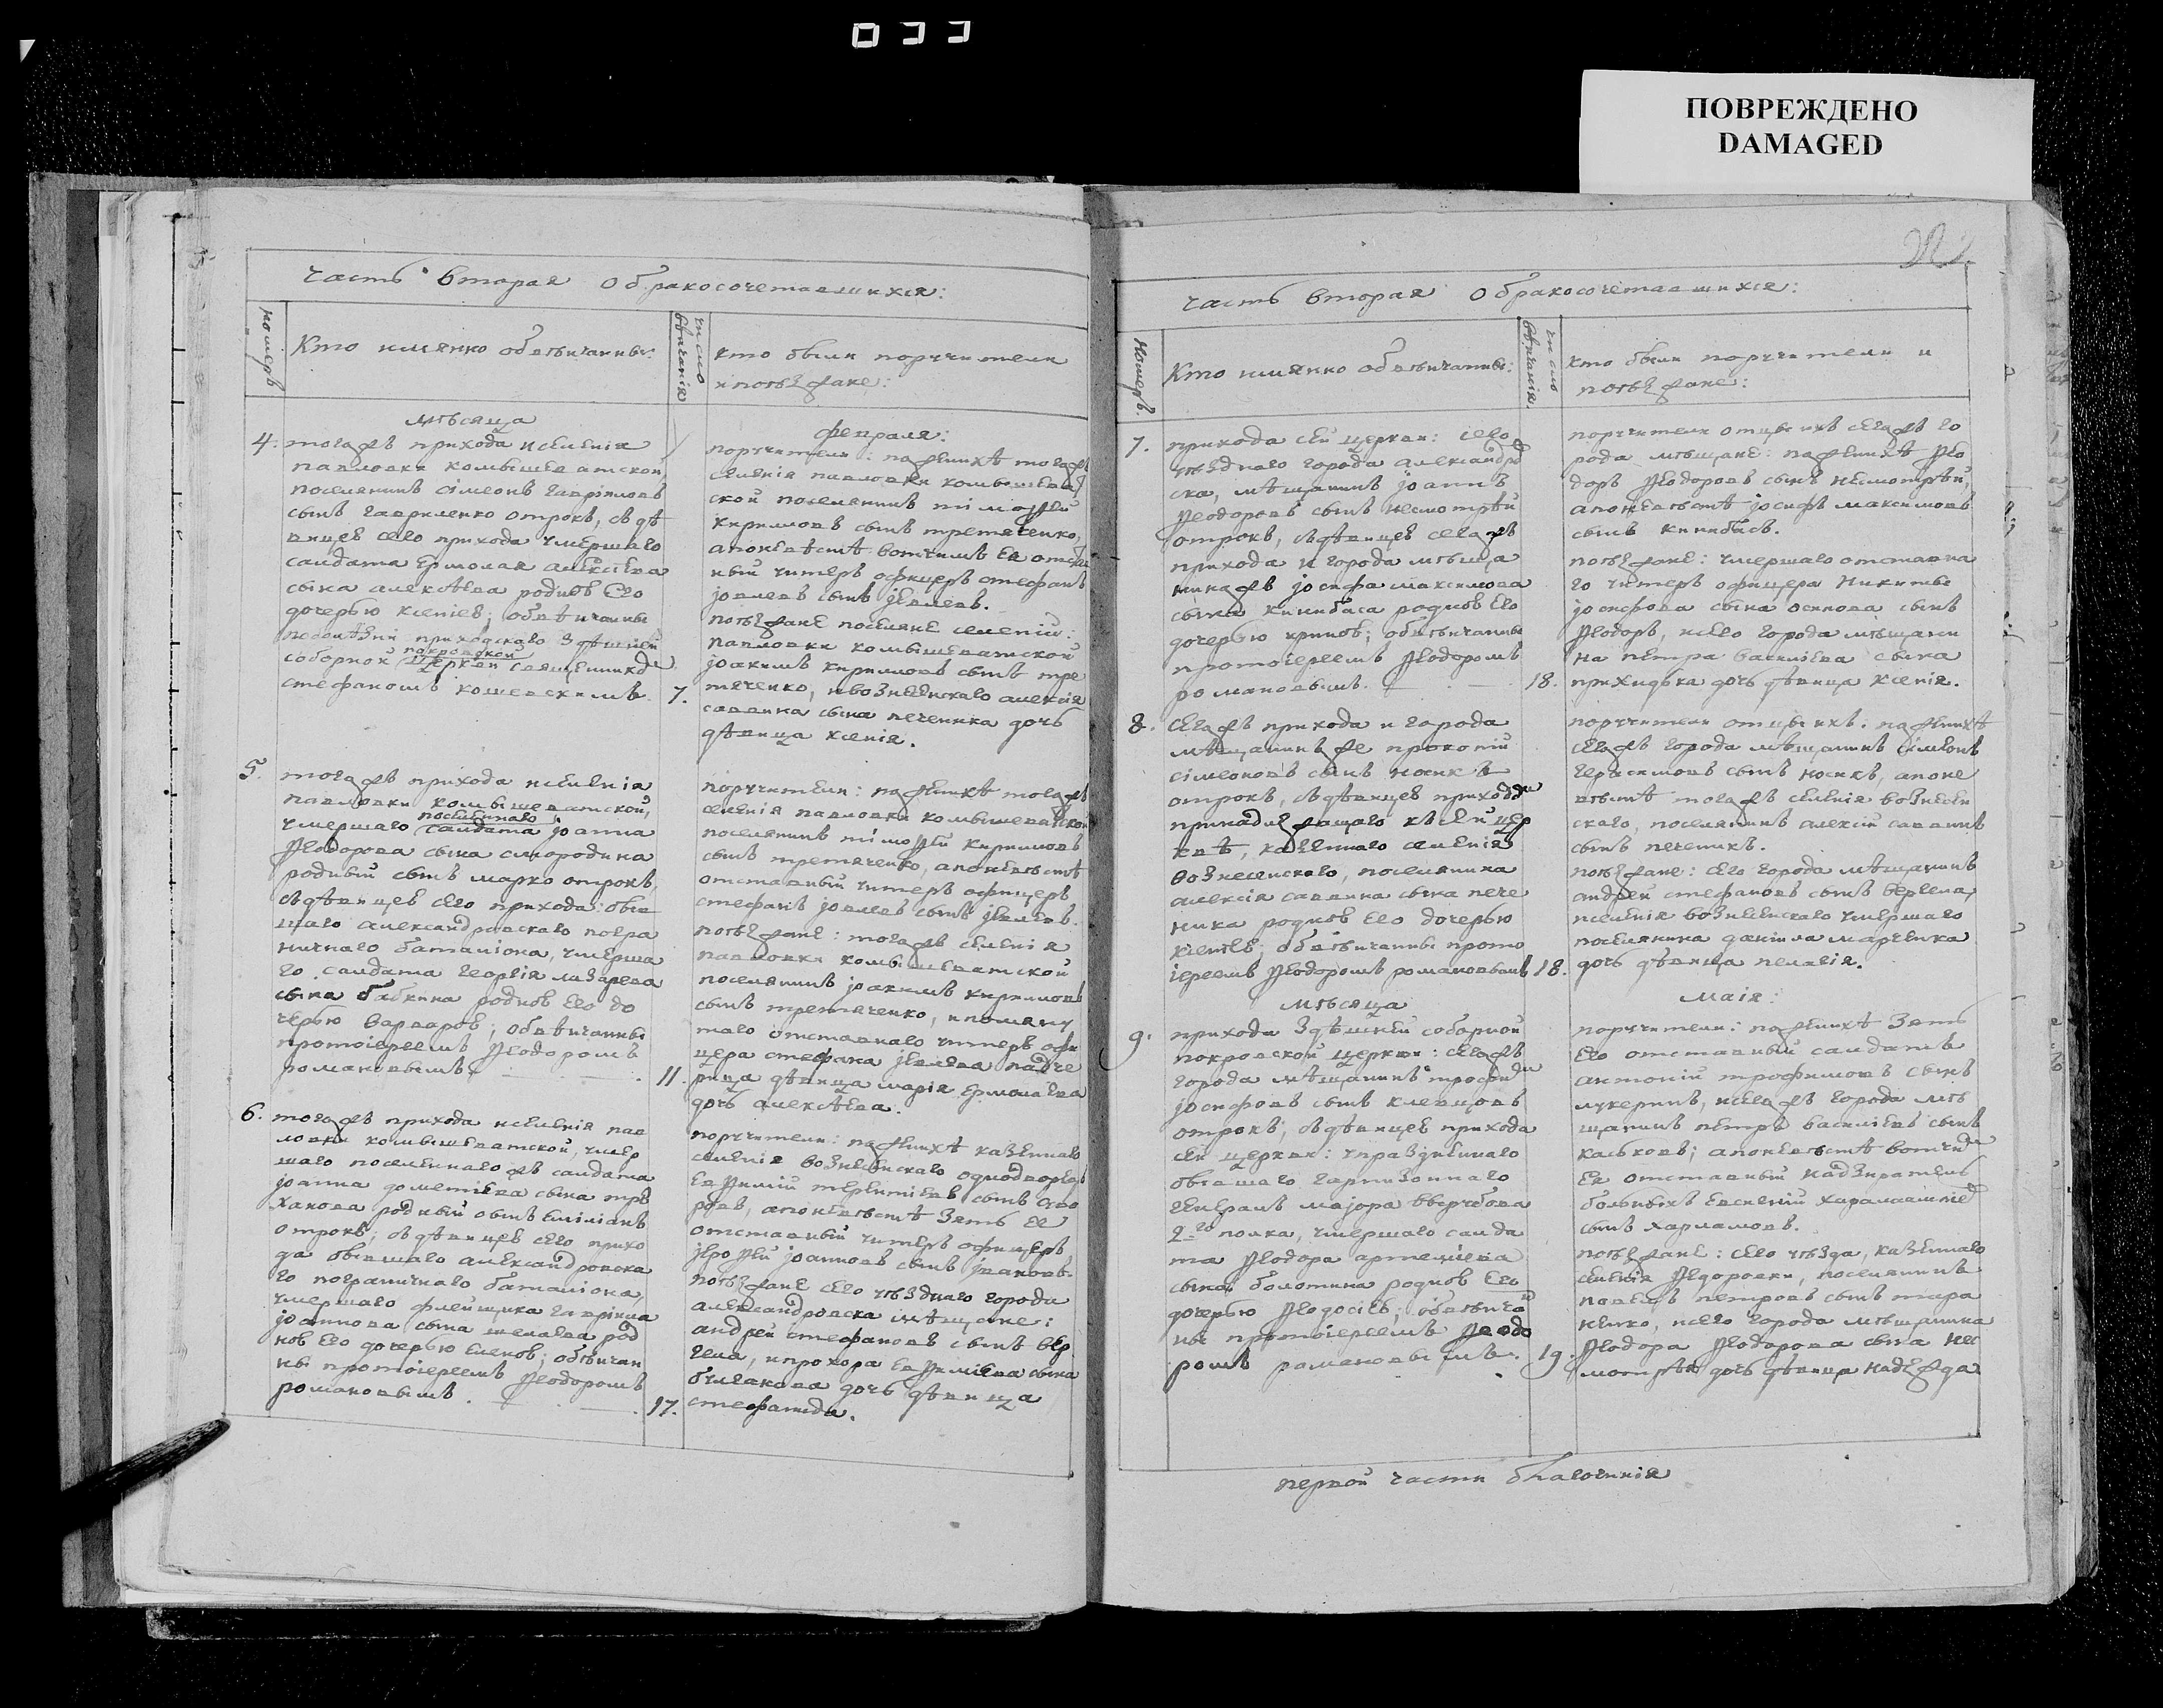 033
ПОВРЕЖДЕНО
DAMAGED
часть вторая о бракосочетавшихся:
номеръ
Кто имянно обвѣнчаны:
число вѣнчанія
кто были поручители
и поѣзжане:
мѣсяца
февраля:
4. тогажъ прихода иселенія
павловки комышеватской,
поселянинъ сімеонъ гавріиловъ
сынъ гавриленко отрокъ, съдѣ
вицею сего прихода умершаго
салдата ермолая алексіева
сына алексѣева родною Его
дочерью ксеніею; обвѣнчаны
приходскаго здѣшней
соборной покровской церкви священником
стефаномъ кошевскимъ. 7.
поручители: поженихѣ тогажъ
селенія павловки комышеват
ской поселянинъ тімоѳей
кирилловъ сынъ третяченко,
апоневѣстѣ вотчимъ Ея отстав
ный унтеръ офицеръ стефанъ
іовлевъ сынъ іевлевъ.
поѣзжане поселяне селенія:
павловки комышеватской
іоакимъ кирилловъ сынъ тре
тяченко, ивознесенскаго алексія
саввина сына печеника дочь
дѣвица ксенія.
5. тогажъ прихода иселенія
павловки комышеватской,
умершаго поселеннаго салдата іоанна
ѳеодорова сына смородина
родный сынъ марко отрокъ,
съдѣвицею сего прихода: быв
шаго александровскаго погра
ничнаго баталіона, умерша
го салдата георгія лазарева
сына бабкина родною Его до
черью варварою; обвѣнчаны
протоіереемъ ѳеодоромъ
романовымъ. 11.
поручители: поженихѣ тогажъ
селенія павловки комышеватской
поселянинъ тімоѳей кирилловъ
сынъ третяченко, апоневѣстѣ
отставный унтеръ офицеръ
стефанъ іовлевъ сынъ іевлевъ.
поѣзжане: тогажъ селенія
павловки комышеватской
поселянинъ іоакимъ кирилловъ
сынъ третяченко, ипомяну
таго отставнаго унтеръ офи
цера стефана іевлева падче
рица дѣвица марія ермолаева
дочь алексѣева.
6. тогажъ прихода иселенія пав
ловки комышеватской, умер
шаго поселеннаго жъ салдата
іоанна дометіева сына
родный сынъ еміліанъ
отрокъ; съдѣвицею сего прихо
да бывшаго александровска
го пограничнаго баталіона,
умершаго флейщика гавріила
іоаннова сына род
ною Его дочерью Еленою; обвѣнчан
ны протоіереемъ ѳеодоромъ
романовымъ. 17.
поручители: поженихѣ казеннаго
селенія вознесенскаго однодворецъ
Евѳимій терентіевъ сынъ
апоневѣстѣ зять Ее
отставный унтеръ офицеръ
іероѳей іоанновъ сынъ ивановъ.
поѣзжане сего уѣзднаго города
александровска мѣщане:
андрей стефановъ сынъ вер
гела, ипрохора Евѳиміева сына
булгакова дочь дѣвица
стефанида.
часть вторая о бракосочетавшихся:
номеръ.
Кто имянно обвѣнчаны:
число вѣнчанія.
кто были поручители и
поѣзжане:
7. прихода сей церкви: сего
уѣзднаго города александров
ска, мѣщанинъ іоаннъ
ѳеодоровъ сынъ несмотрѣй
отрокъ, съдѣвицею сегожъ
прихода и города мѣща
нинажъ іосифа максимова
сына кинибаса родною Его
дочерью ириною; обвѣнчаны
протоіереемъ ѳеодоромъ
романовымъ. 18.
поручители отцы ихъ сегожъ го
рода мѣщане: поженихѣ ѳео
доръ ѳеодоровъ сынъ несмотрѣй,
апоневѣстѣ іосифъ максимовъ
сынъ кинибасъ.
поѣзжане: умершаго отставна
го унтеръ офицера никиты
іосифова сына осипова сынъ
ѳеодоръ, исего города мѣщани
на петра василіева сына
дочь дѣвица ксенія.
8. сегожъ прихода и города
мѣщанинъ же прокопій
сімеоновъ сынъ носикъ
отрокъ, съдѣвицею прихода
принадлежащаго къ сей цер
квѣ, казеннаго селенія
вознесенскаго, поселянина
алексія саввина сына пече
ника родною Его дочерью
ксеніею; обвѣнчанны прото
іереемъ ѳеодоромъ романовымъ 18.
поручители отцы ихъ. поженихѣ
сегожъ города мѣщанинъ сімеонъ
герасимовъ сынъ носикъ, апоне
вѣстѣ тогажъ селенія вознесен
скаго, поселянинъ алексій саввинъ
сынъ печеникъ.
поѣзжане: сего города мѣщанинъ
андрей стефановъ сынъ вергела,
иселенія вознесенскаго умершаго
поселянина даніила марченка
дочь дѣвица пелагія.
мѣсяца
маія:
9. прихода здѣшней соборной
покровской церкви: сегожъ
города мѣщанинъ трофим
іосифовъ сынъ клевцовъ
отрокъ; съдѣвицею прихода
сей церкви: упраздненнаго
бывшаго гарнизоннаго
генералъ майора вверчебова
2го полка, умершаго салда
та ѳеодора артеміева
сына болотина родною Его
дочерью ѳеодосіею; обвѣнчан
ны протоіереемъ ѳеодо
ромъ романовымъ. 19.
поручители: поженихѣ зять
Его отставный салдатъ
антоній трофимовъ сынъ
лукеринъ, исегожъ города мѣ
щанинъ петръ василіевъ сынъ
каськовъ; апоневѣстѣ вотчим
Ея отставный надзиратель
больныхъ Евсевій
сынъ харламовъ.
поѣзжане: сего уѣзда, казеннаго
селенія ѳедоровки, поселянинъ
павелъ петровъ сынъ тара
ненко, исего города мѣщанина
ѳеодора ѳеодорова сына нес
мотрѣя дочь дѣвица надежда
первой части благочинія